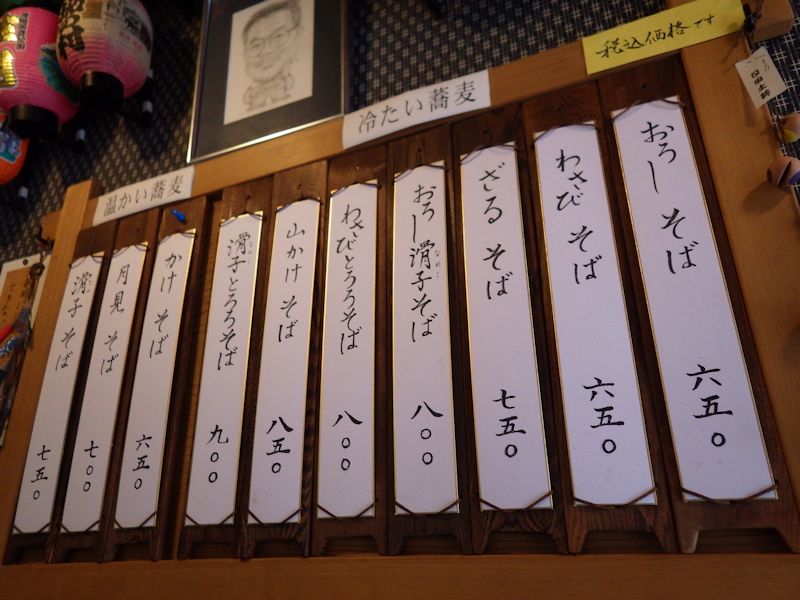 税込価格です
冷たい蕎麦
おろしそば 六五〇
わさびそば 六五〇
ざるそば 七五〇
おろし滑子そば 八〇〇
なめこ
わさびとろろそば 八〇〇
山かけそば 八五〇
滑子とろろそば 九〇〇
なめこ
温かい蕎麦
かけそば 六五〇
月見そば 七〇〇
滑子そば 七五〇
なめこ